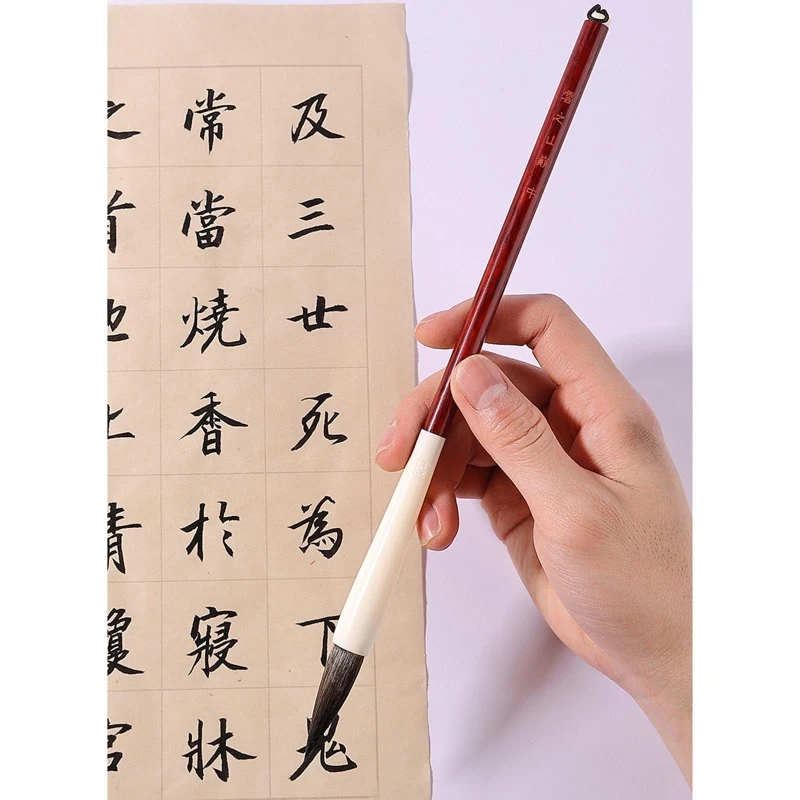 及三世死為下鬼
常當燒香於寢牀
之首也上清瓊宮